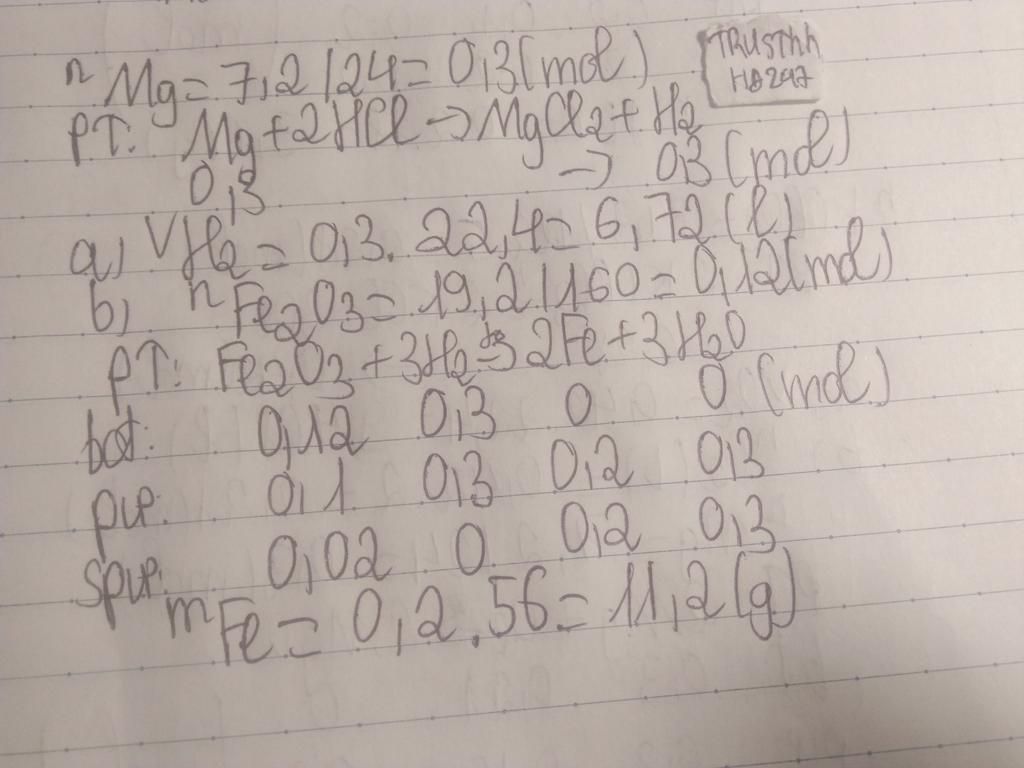 nMg = 7,2/24 = 0,3 (mol)
TRUSTHH
HD247
PT: Mg + 2HCl → MgCl2 + H2
0,3 → 0,3 (mol)
a) VH2 = 0,3. 22,4 = 6,72 (l)
b) nFe2O3 = 19,2/160 = 0,12 (mol)
PT: Fe2O3 + 3H2 → 2Fe + 3H2O
bđ: 0,12 0,3 0 0 (mol)
pư: 0,1 0,3 0,2 0,3
spư: 0,02 0 0,2 0,3
mFe = 0,2.56 = 11,2 (g)